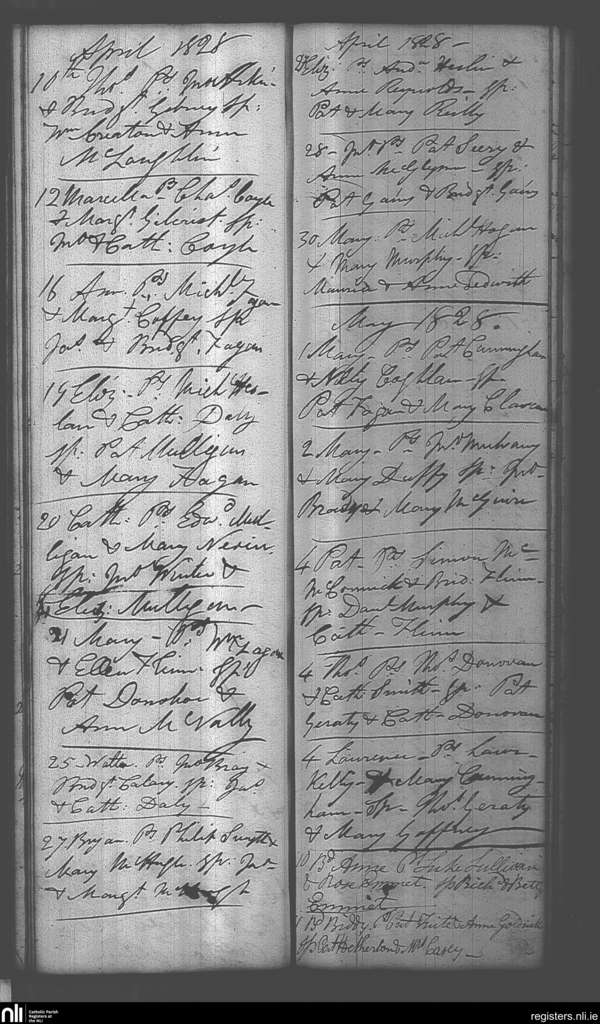 April 1828
10th Thos. Ps. Jno
& Bridgt. Gibney Sp:
Wm Creaton & Ann
McLaughlin
12 Marcella Ps. Chas. Coyle
& Margt. Gilcrist Sp:
Jno & Cath: Coyle
16 Ann. Ps. Michl. Fagan
& Margt. Coffey Sp
Jas. & Bridgt. Fagan
19 Eliz. Ps. Michl.
& Cath: Daly
Sp: Pat Mulligan
& Mary Fagan
20 Cath: Ps. Edwd. Mul-
ligan & Mary Nevin
Sp: Jno Winter &
Eliz: Mulligan
21 Mary - Ps. Wm Fagan
& Ellen Flinn Sp:
Pat Donohoe &
Ann McNally
25 Ps. Jno Bray &
Bridgt. Sp: Jas
& Cath: Daly
27 Bryan. Ps Philip Smyth &
Mary McHugh. Sp: Jno
& Margt.
April 1828 -
Eliz: Ps. Andw. Heslin &
Anne Reynolds - Sp:
Pat & Mary Reilly
28 - Jno. Ps Pat Seery &
Ann McGlynn - Sp:
Pat Gains & Bridgt. Gains
30 Mary. Ps. Michl. Hogan
& Mary Murphy - Sp:
Maurice & Anne
May 1828.
1 Mary - Ps Pat Cunningham
& Coghlan - Sp
Pat Fagan & Mary
2 Mary - Ps. Jno
& Mary Duffy Sp: Jno
& Mary McGuire
4 Pat - Ps. Simon Mc-
McCormick & Brid: Flinn -
Sp: Danl. Murphy &
Cath - Flinn
4 Thos. Ps. Thos. Donovan
& Cath Smith - Sp: Pat
Geraty & Cath - Donovan
4 Lawrence - Ps. Lawr-
Kelly - & Mary Cunning-
ham - Sp - Thos. Geraty
& Mary Gaffney
10 Bd Anne Ps Luke Sullivan
& Rose Emmet. Sp Rich & Betty
Emmet
Bd Biddy. Ps Pat & Anne
Sp Pat & Mrs Casey -
nli Catholic Parish
Registers at
the NLI
registers.nli.ie